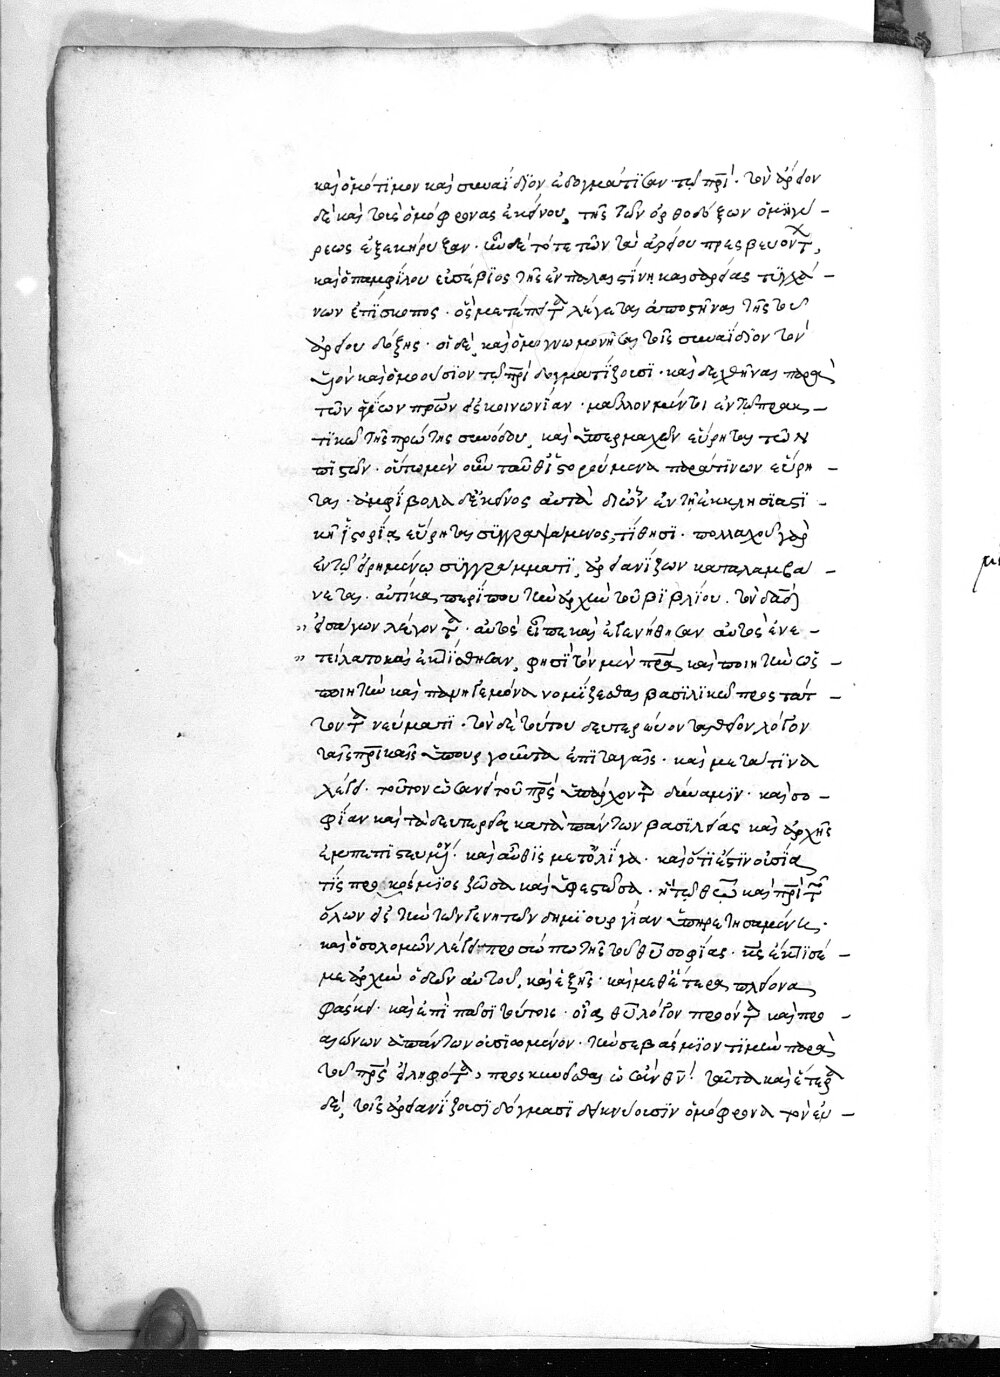 καὶ ὁμότιμον καὶ συναΐδιον ἐδογμάτισαν τῷ πρί· τὸν ἄρειον
δὲ καὶ τοὺς ὁμόφρονας ἐκείνου, τῆς τῶν ὀρθοδόξων ὁμηγύ –
ρεως ἐξεκήρυξαν· ὧν δὲ τότε τῶν τὰ ἀρείου πρεσβευόντ,
καὶ ὁ παμφίλου εὐσέβιος τῆς ἐν παλαιστίνῃ καισαρείας τυγχά –
νων ἐπίσκοπος· ὃς μετέπειτα λέγεται ἀποστῆναι τῆς τοῦ
ἀρείου δόξης· οἱ δὲ, καὶ ὁμογνωμονῆσαι τοῖς συναΐδιον τὸν
υἱὸν καὶ ὁμοούσιον τῷ πρὶ δογματίζουσι· καὶ δεχθῆναι παρὰ
τῶν θείων πρῶν εἰς κοινωνίαν· μᾶλλον μέντοι ἐν τῷ πρακ –
τικῷ τῆς πρώτης συνόδου, καὶ ὑπερμαχῶν εὕρηται τῶν
πιστῶν· οὕτω μὲν οὖν ταῦθ' ἱστορούμενα παρά τινων εὕρη –
ται· ἀμφίβολα δ' ἐκεῖνος αὐτὰ δι' ὧν ἐν τῇ ἐκκλησιαστι –
κῇ ἱστορίᾳ εὕρηται συγγραψάμενος, τίθησι· πολλαχοῦ γὰρ
ἐν τῷ εἰρημένῳ συγγράμματι, ἀρειανίζων καταλαμβά –
νεται· αὐτίκα περί που τὴν ἀρχὴν τοῦ βιβλίου· τὸν δαδ
εἰσάγων λέγοντα· αὐτὸς εἶπε καὶ ἐγενήθησαν αὐτὸς ἐνε –
τείλατο καὶ ἐκτίσθησαν, φησὶ τὸν μὲν πρα καὶ ποιητὴν ὡς –
ποιητὴν καὶ πανηγεμόνα νομίζεσθαι βασιλικῷ προστάτ –
τοντα νεύματι· τὸν δὲ τούτου δευτερεύοντα θεῖον λόγον
ταῖς πρικαῖς ὑπουργοῦντα ἐπιταγαῖς· καὶ μετά τινα
λέγει· τοῦτον ὡσανεὶ τοῦ πρς ὑπάρχοντα δύναμιν· καὶ σο –
φίαν καὶ τὰ δευτερεῖα κατὰ πάντων βασιλείας καὶ ἀρχῆς
ἐμπεπιστευμέν· καὶ αὖθις μετ' ὀλίγα· καὶ ὅτι ἐστὶν οὐσία
τίς προκόσμιος ζῶσα καὶ ὑφεστῶσα· ἡ τῷ θεῷ καὶ πρὶ τῶν
ὅλων εἰς τὴν τῶν γενητῶν δημιουργίαν ὑπηρετησαμένη·
καὶ ὁ σολομῶν λέγει προσώπῳ τῆς τοῦ θυ σοφίας· κς ἔκτισέ –
με ἀρχὴν ὁδῶν αὐτοῦ, καὶ ἑξῆς· καὶ μεθ' ἕτερα πλείονα
φάσκει· καὶ ἐπὶ πᾶσι τούτοις· οἷα θυ λόγον προόντα καὶ προ –
αιώνων ἁπάντων οὐσιωμένον· τὴν σεβάσμιον τιμὴν παρὰ
τοῦ πρς εἰληφότα, προσκυνεῖσθαι ὡσὰν θν· ταῦτα καὶ ἕτερα
δὲ, τοῖς ἀρειανίζουσι δόγμασι δεικνύουσιν ὁμόφρονα τὸν εὐ –